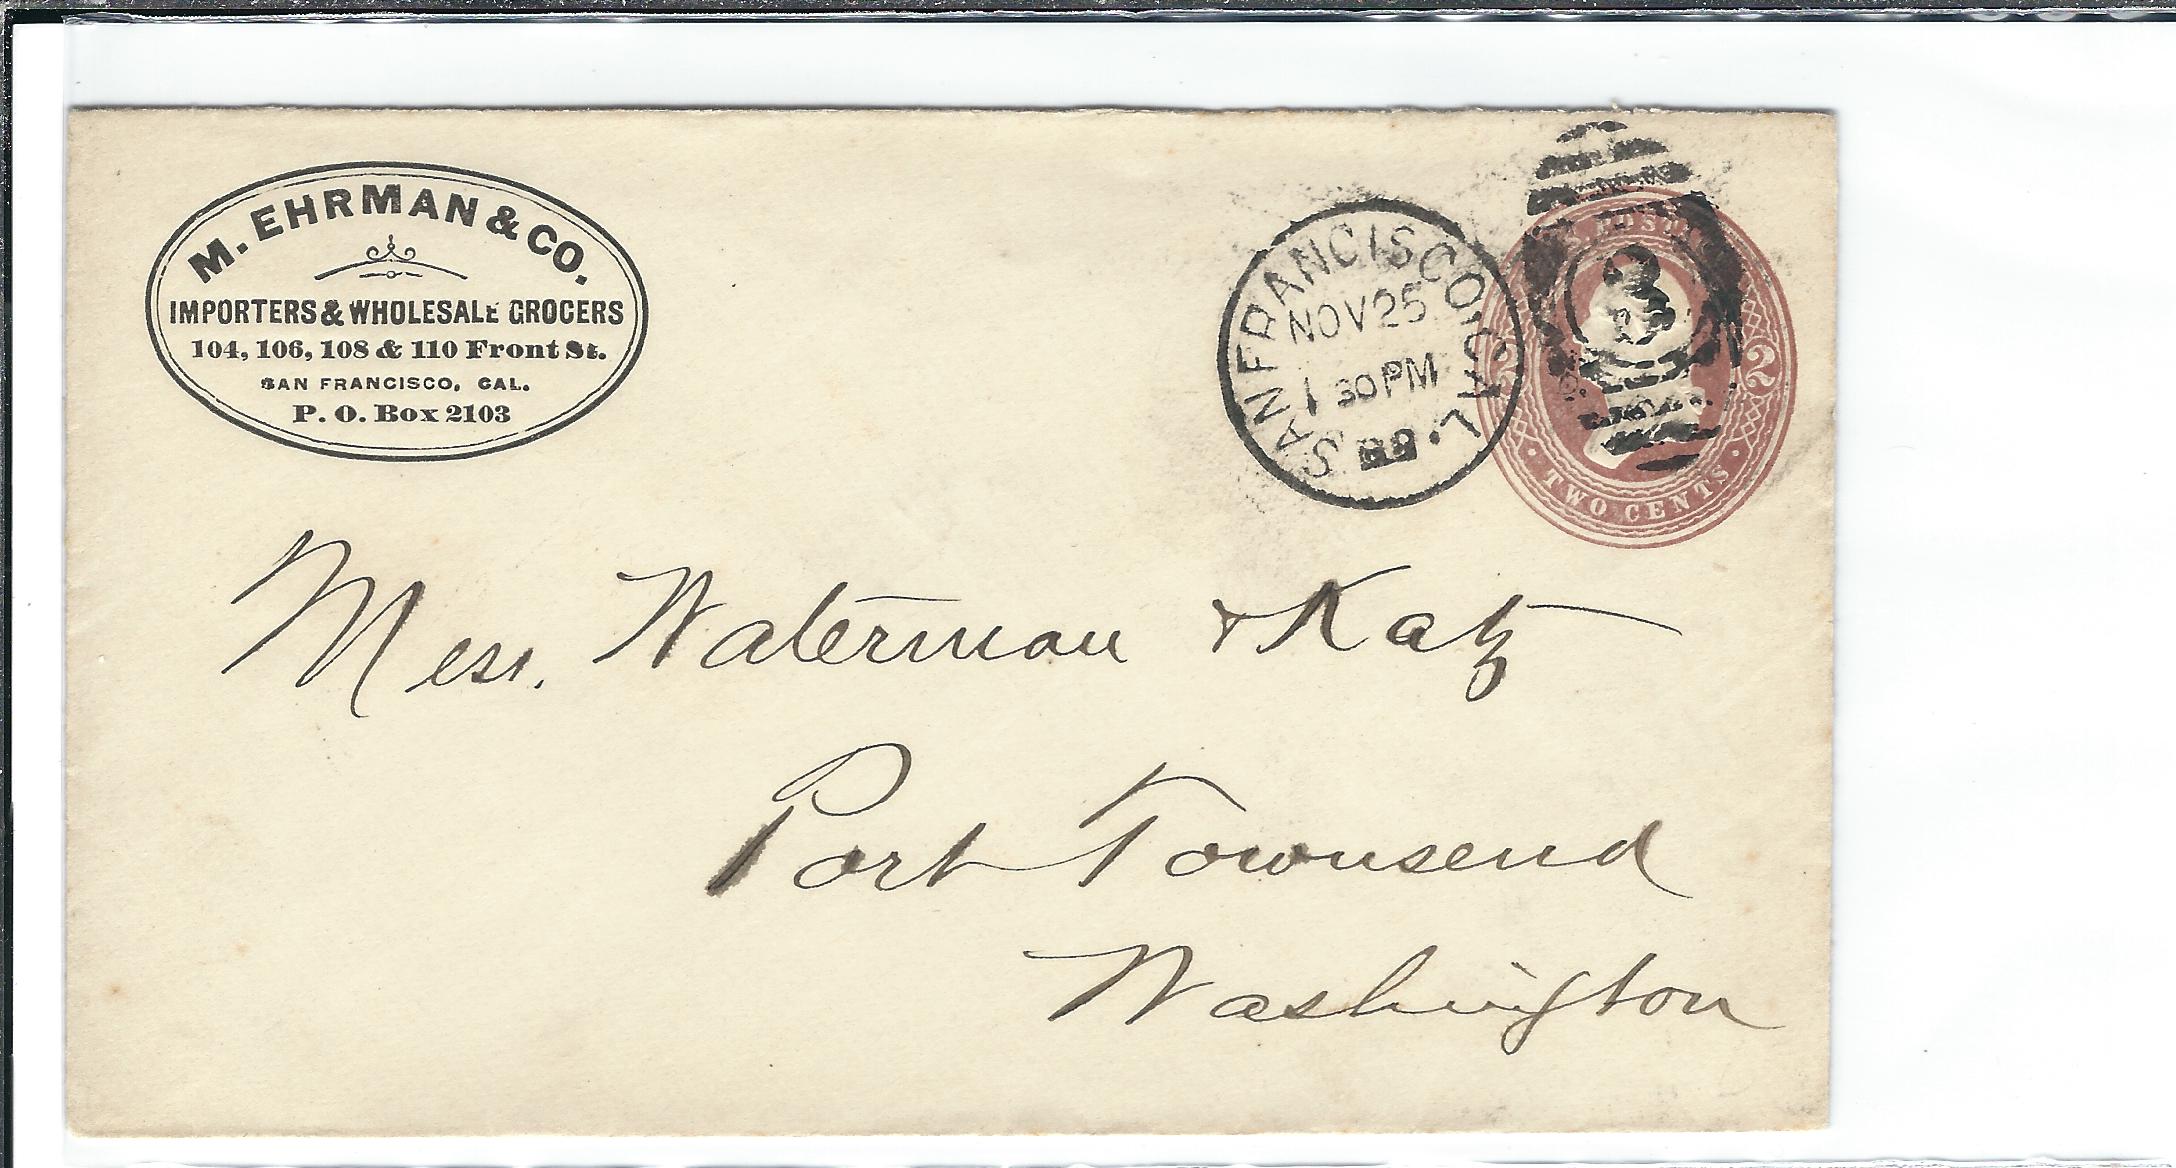 M. EHRMAN & CO.
IMPORTERS & WHOLESALE GROCERS
104, 106, 108 & 110 Front St.
SAN FRANCISCO, CAL.
P. O. Box 2103
SAN FRANCISCO, CAL.
NOV 25
1 30 PM
2
TWO CENTS
Mess. Waterman & Katz
Port Townsend
Washington